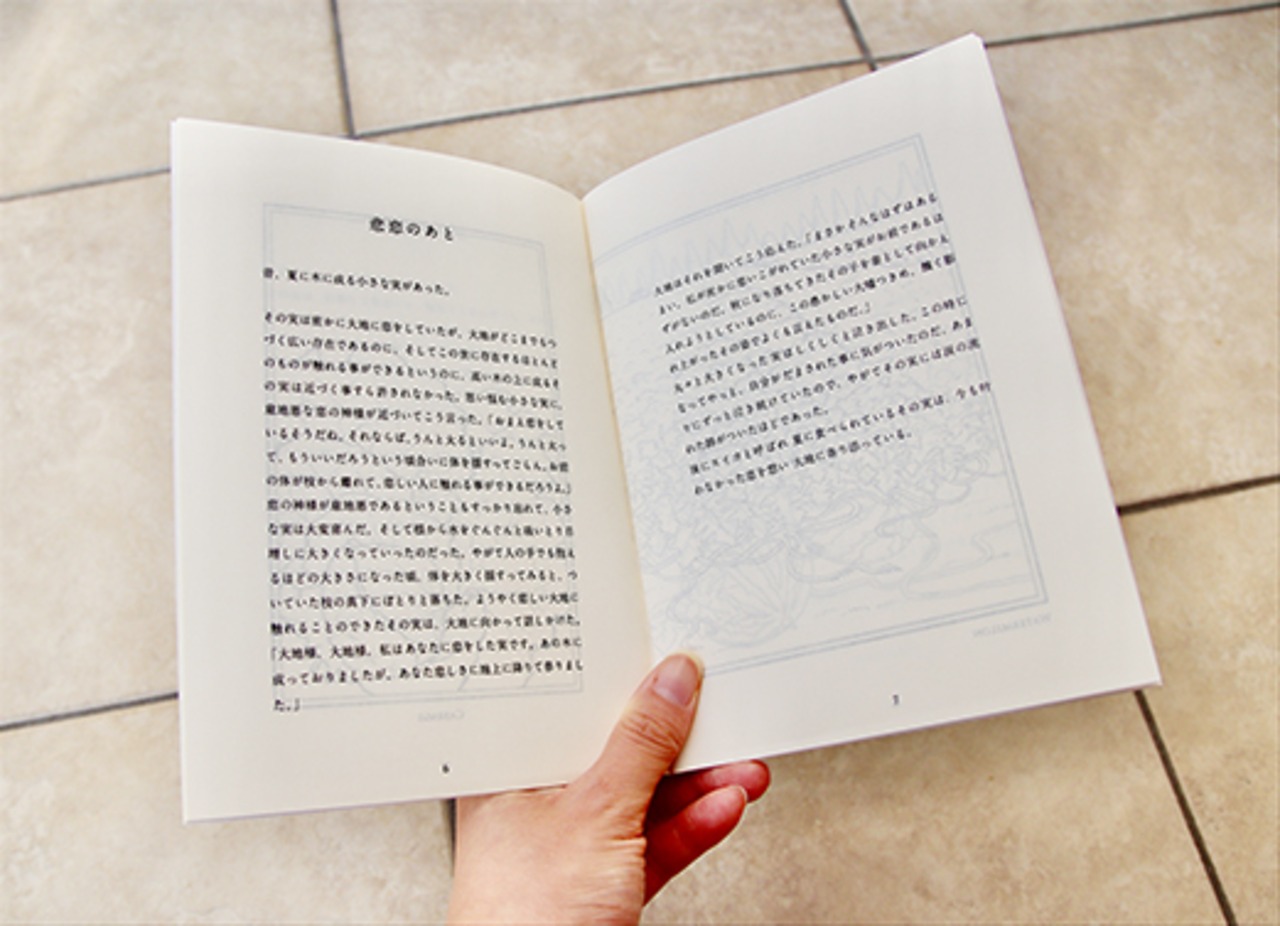 悲恋のあと
昔、夏に木に成る小さな実があった。
その実は密かに大地に恋をしていたが、大地がどこまでもつ
づく広い存在であるのに、そしてこの世に存在するほとんど
のものが触れる事ができるというのに、高い木の上に成るそ
の実は近づく事すら許されなかった。思い悩む小さな実に、
意地悪な恋の神様が近づいてこう言った。「おまえ恋をして
いるそうだね。それならば、うんと太るといいよ。うんと太っ
て、もういいだろうという頃合いに体を揺すってごらん。お前
の体が枝から離れて、恋しい人に触れる事ができるだろうよ。」
恋の神様が意地悪であるということもすっかり忘れて、小さ
な実は大変喜んだ。そして様から水をぐんぐんと吸いとり日
増しに大きくなっていったのだった。やがて人の手でも抱え
るほどの大きさになった頃、体を大きく揺すってみると、つ
いていた枝の真下にぼとりと落ちた。ようやく恋しい大地に
触れることのできたその実は、大地に向かって話しかけた。
「大地様、大地様、私はあなたに恋をした実です。あの木に
成っておりましたが、あなた恋しさに地上に降りて参りまし
た。」
6
大地はそれを聞いてこう応えた。「まさかそんなはずはある
まい。私が密かに思いこがれていた小さな実がお前であるは
ずがないのだ。秋になり落ちてきたその子を妻として向かえ
入れようとしているのに、この愚かしい大嘘つきめ。醜く膨
れ上がったその姿でよくも言えたものだ。」
丸々と大きくなった実はしくしくと泣き出した。この時に
なってやっと、自分がだまされた事に気がついたのだ。あま
りにずっと泣き続けていたので、やがてその実には涙の流
れた跡がついたほどであった。
後にスイカと呼ばれ夏に食べられているその実は、今も叶
わなかった恋を想い大地に寄り添っている。
7
CABBAGE
WATERMELON